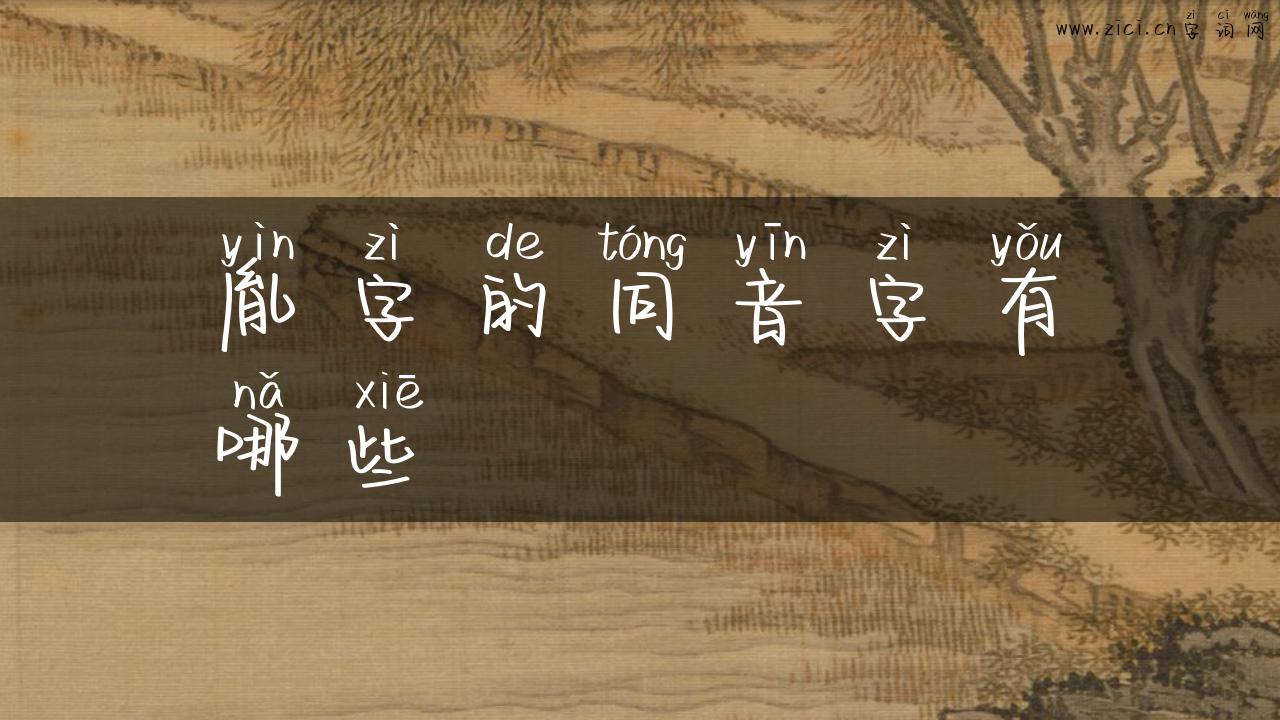 zì cí wǎng
www.zici.cn字词网
yìn zì de tóng yīn zì yǒu
胤字的同音字有
nǎ xiē
哪些